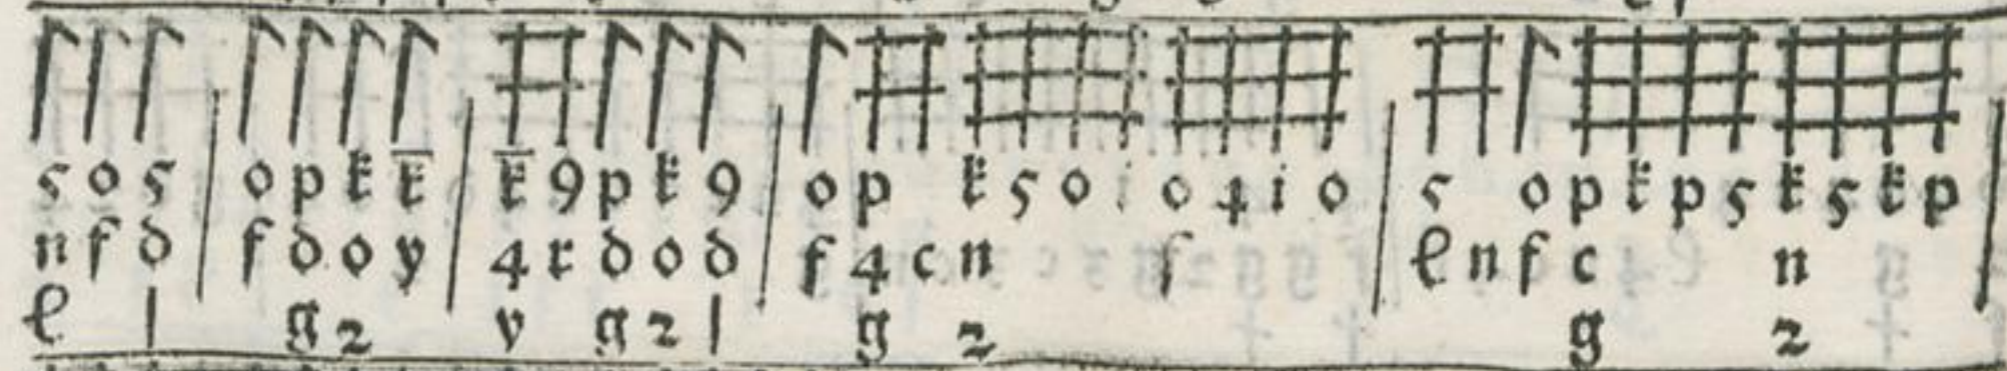 5 o 5 | o p k k̅ | k̅ 9 p k 9 | o p k 5 o i o 4 i o | 5 o p k p 5 k 5 k p |
n f d | f d o y | 4 r d o d | f 4 c n f | e n f c n |
e 1 g 2 y g 2 1 g 2 g 2